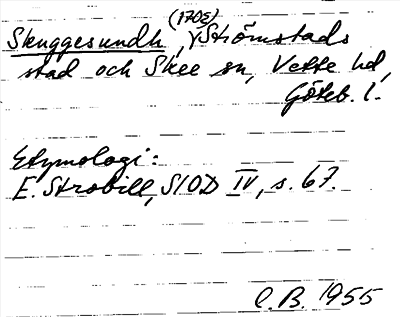 (1705)
Skuggesundh, Strömstads
stad och Skee sn, Vette hd,
Göteb. l.
Etymologi:
E. Strobill, SIOD IV, s. 67.
C. B. 1955